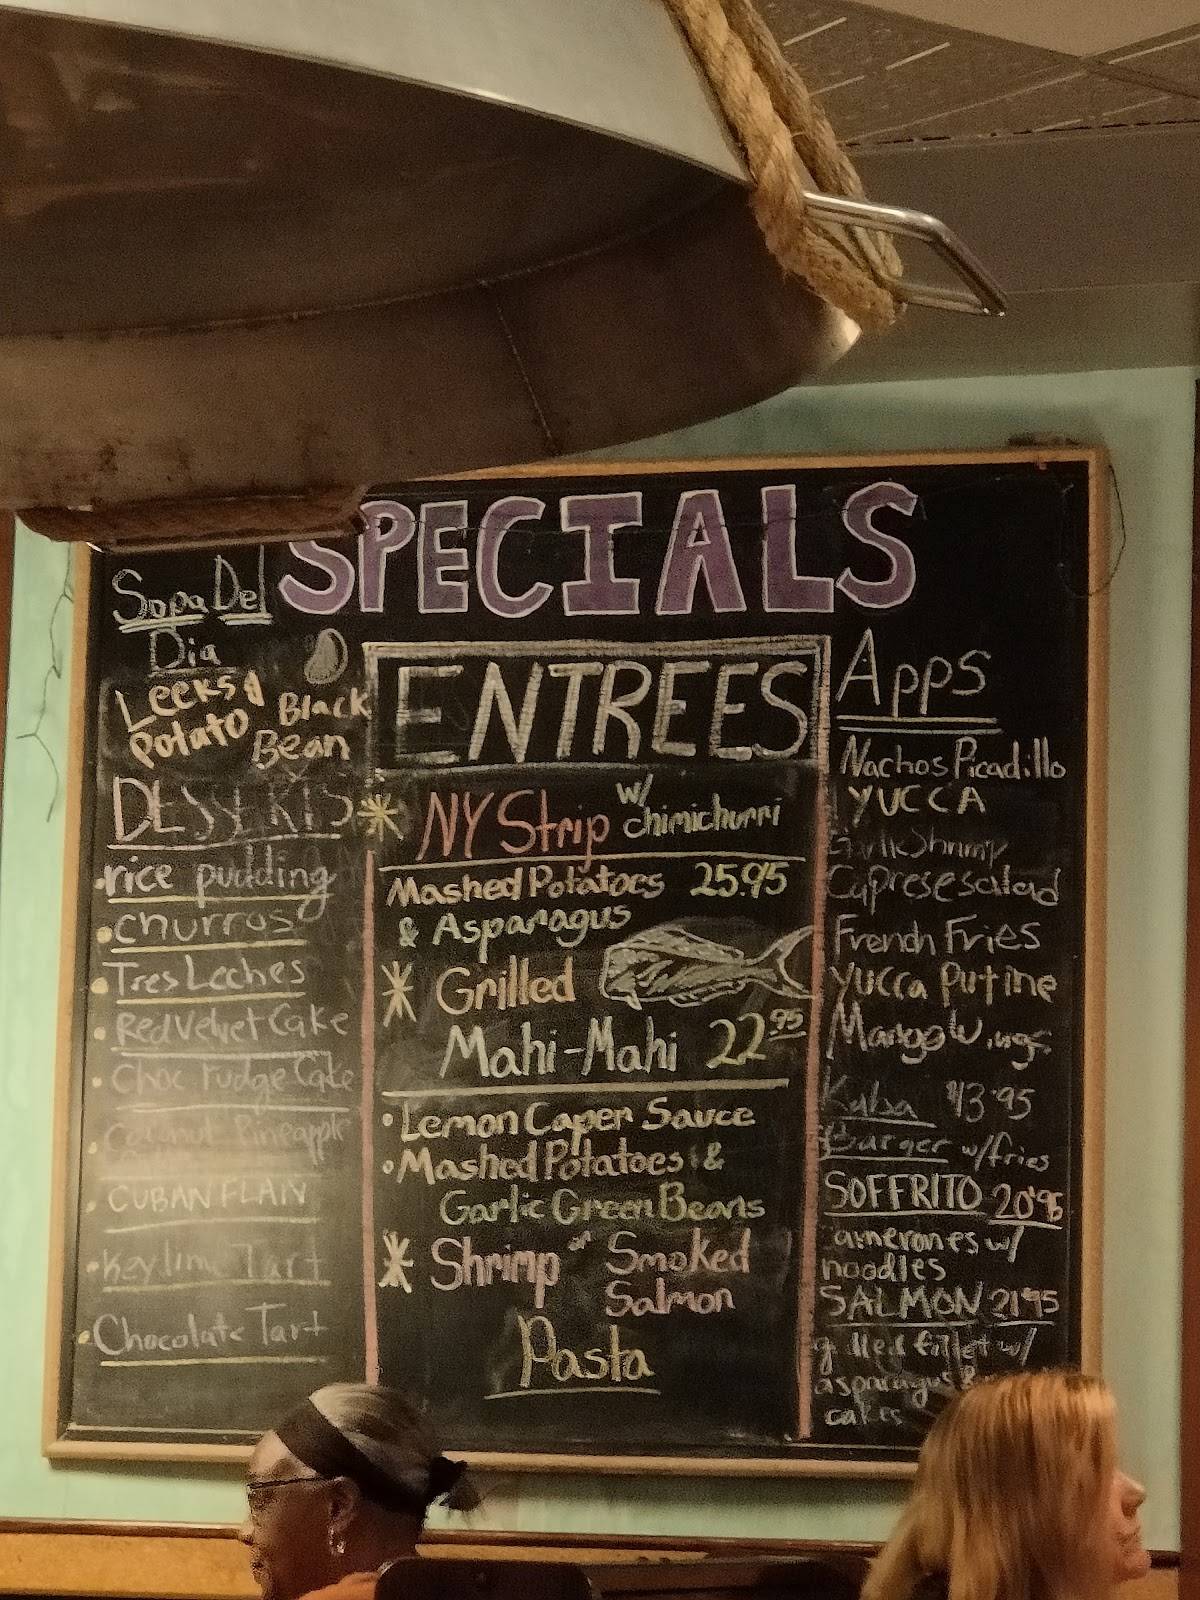 SPECIALS
Sopa Del
Dia
Leeks &
Potato
Black
Bean
DESSERTS
rice pudding
churros
Tres Leches
Red Velvet Cake
Choc Fudge Cake
Coconut Pineapple
CUBAN FLAN
Keylime Tart
Chocolate Tart
ENTREES
NY Strip w/ chimichurri
Mashed Potatoes 25.95
& Asparagus
Grilled
Mahi-Mahi 22.95
Lemon Caper Sauce
Mashed Potatoes &
Garlic Green Beans
Shrimp or Smoked
Salmon
Pasta
Apps
Nachos Picadillo
YUCCA
Garlic Shrimp
Caprese salad
French Fries
Yucca Putine
Mango Wings
Kuba $13.95
Burger w/fries
SOFFRITO 20.95
camerones w/
noodles
SALMON 21.95
grilled fillet w/
asparagus &
cakes